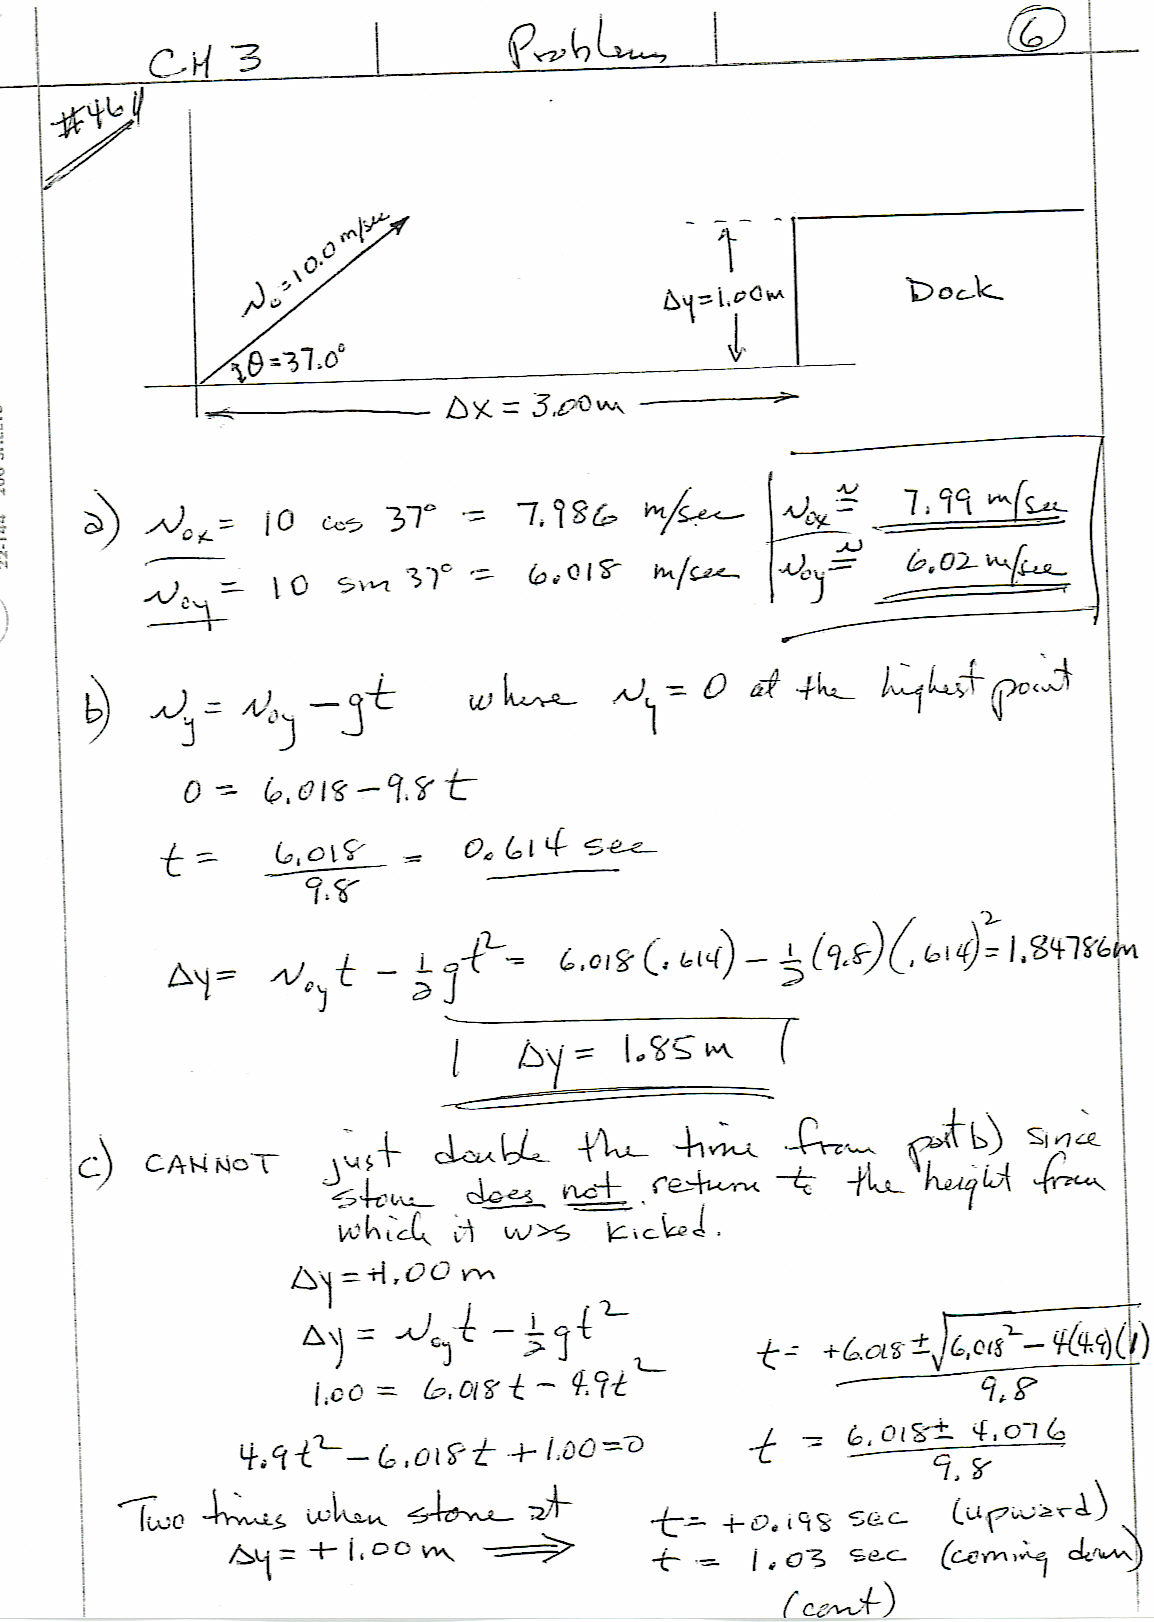 CH 3 Problems 6
#46
v₀=10.0 m/sec
θ=37.0°
Δy=1.00m
Dock
Δx = 3.00m
a) v₀ₓ = 10 cos 37° = 7.986 m/sec v₀ₓ ≅ 7.99 m/sec
v₀y = 10 sin 37° = 6.018 m/sec v₀y ≅ 6.02 m/sec
b) vy = v₀y - gt where vy = 0 at the highest point
0 = 6.018 - 9.8t
t = 6.018/9.8 = 0.614 sec
Δy = v₀y t - ½gt² = 6.018(.614) - ½(9.8)(.614)² = 1.84786m
Δy = 1.85m
c) CANNOT just double the time from part b) since
stone does not return to the height from
which it was kicked.
Δy = +1.00m
Δy = v₀y t - ½gt²
1.00 = 6.018t - 4.9t²
4.9t² - 6.018t + 1.00 = 0
t = +6.018 ± √(6.018² - 4(4.9)(1)) / 9.8
t = 6.018 ± 4.076 / 9.8
Two times when stone at
Δy = +1.00m ⟹
t = +0.198 sec (upward)
t = 1.03 sec (coming down)
(cont)